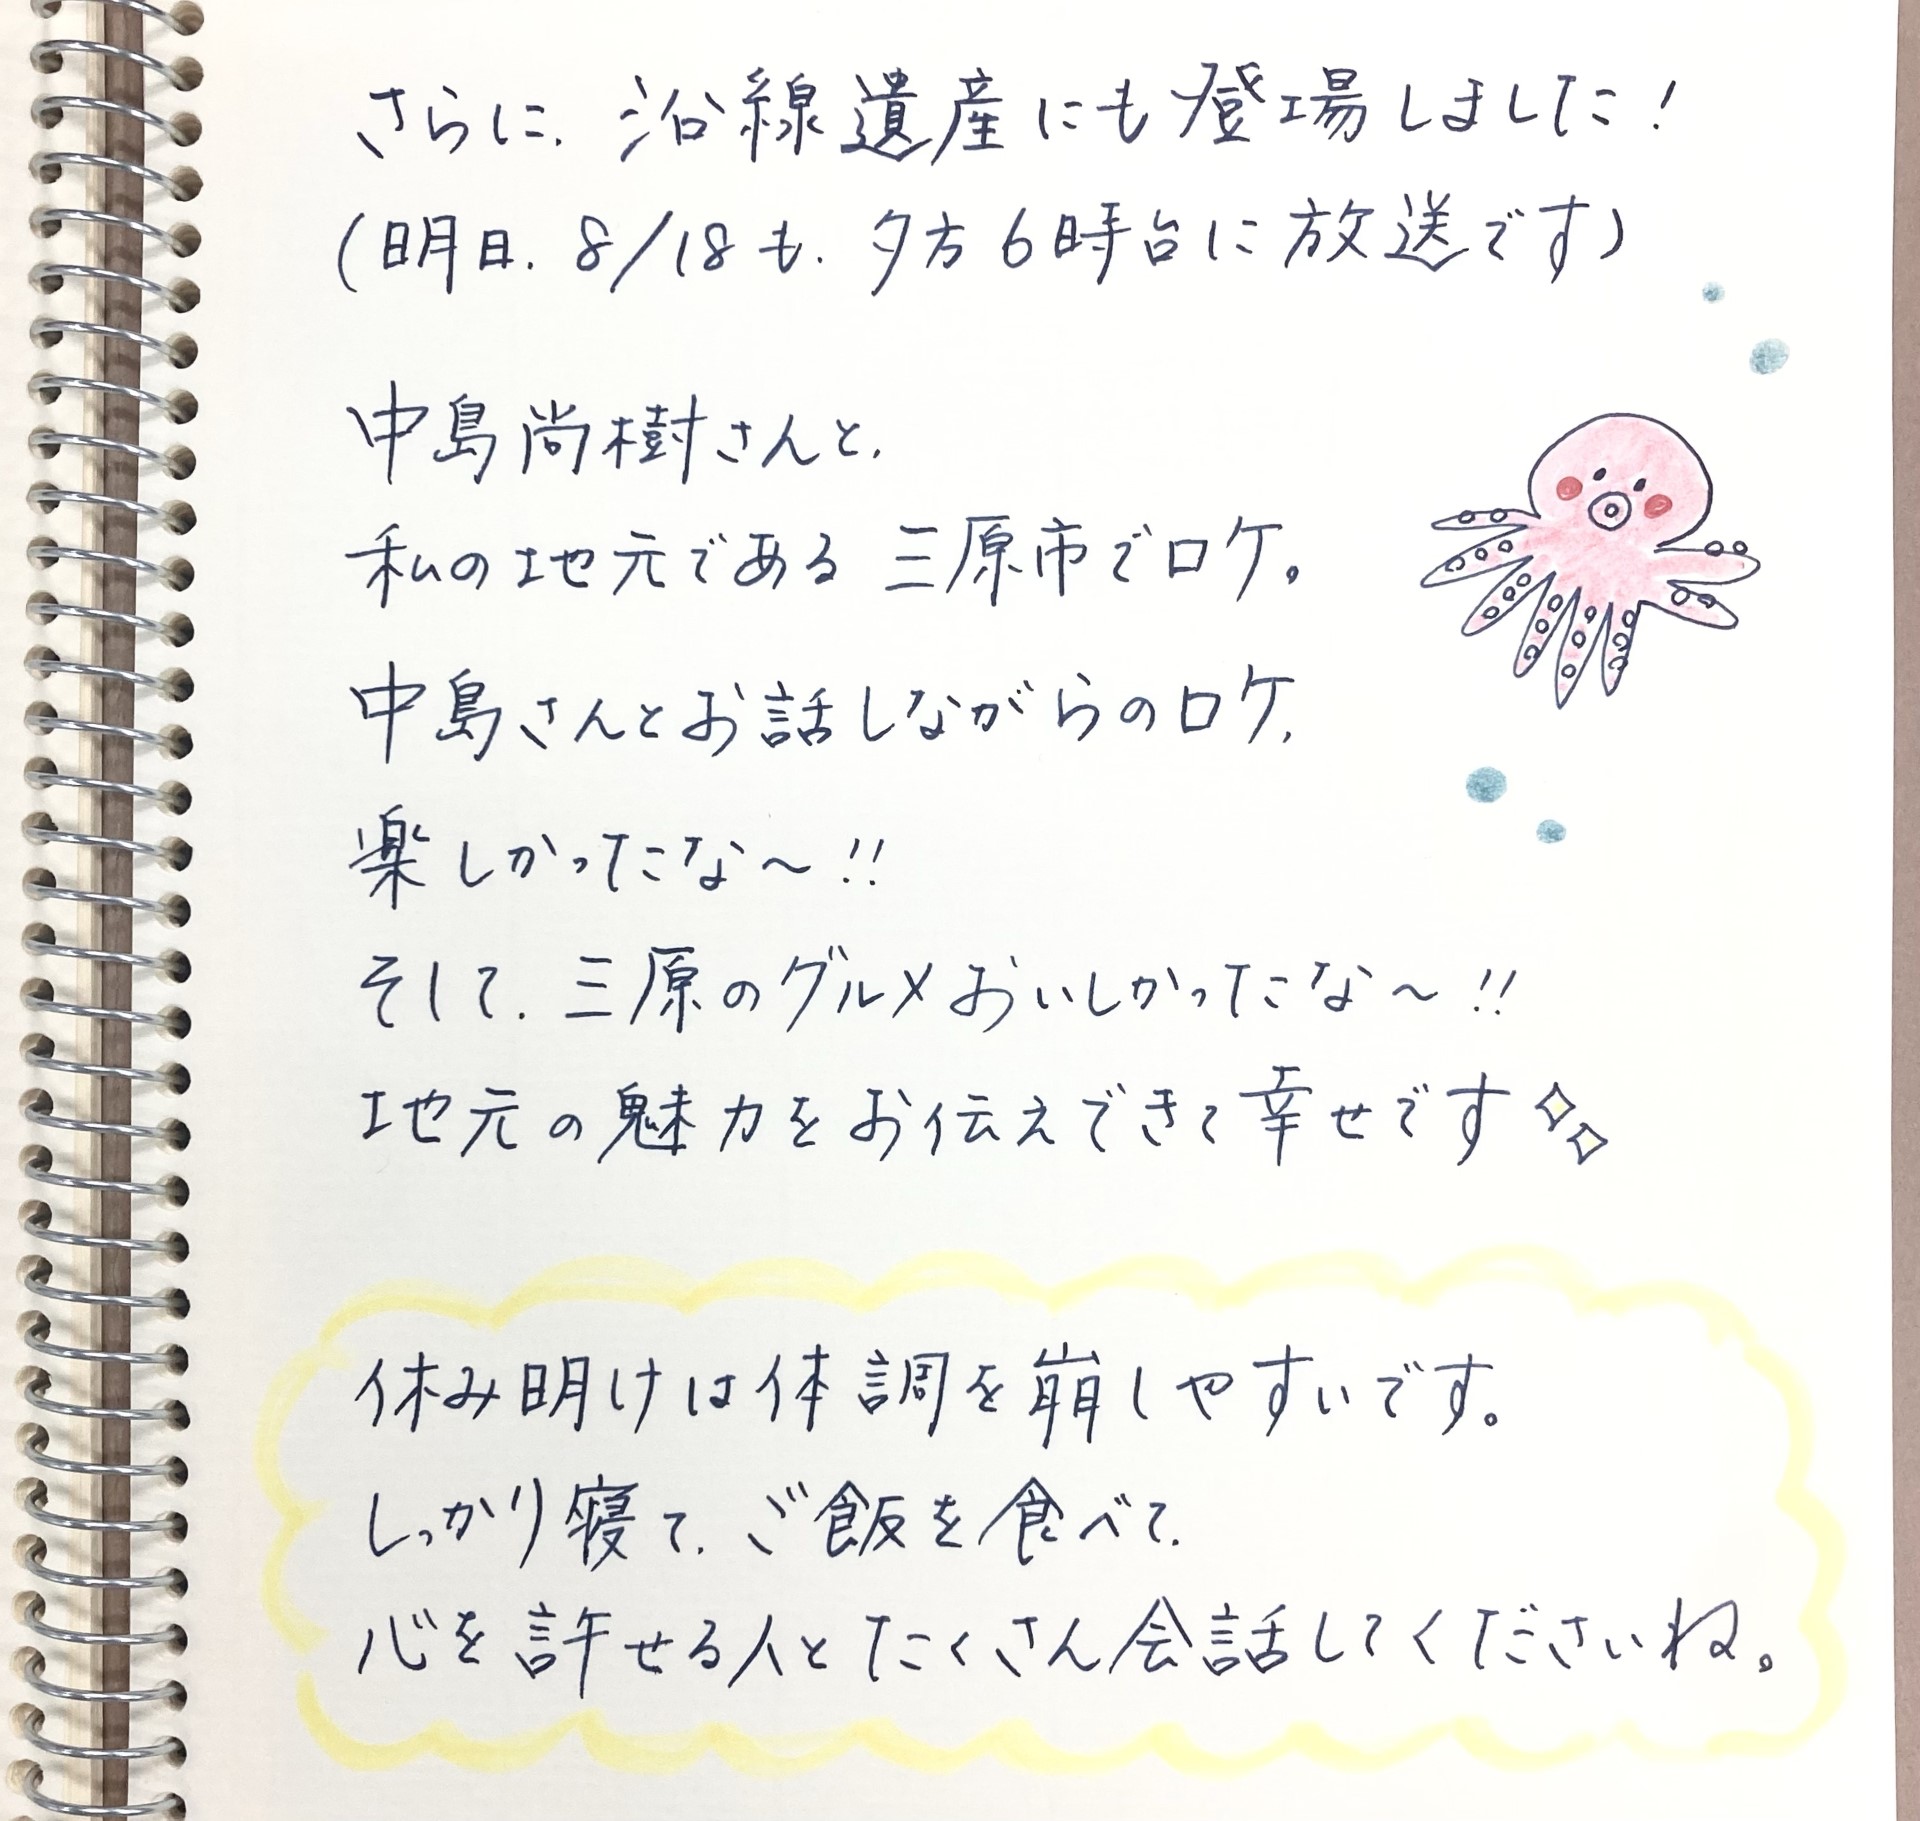 さらに、沿線遺産にも登場しました！
（明日、8/18も、夕方6時台に放送です）
中島尚樹さんと、
私の地元である三原市でロケ。
中島さんとお話しながらのロケ、
楽しかったな〜!!
そして、三原のグルメおいしかったな〜!!
地元の魅力をお伝えできて幸せです✨
休み明けは体調を崩しやすいです。
しっかり寝て、ご飯を食べて、
心を許せる人とたくさん会話してくださいね。